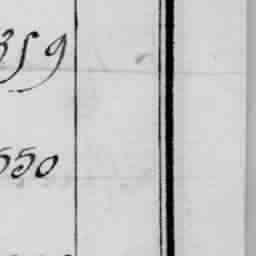 359
550